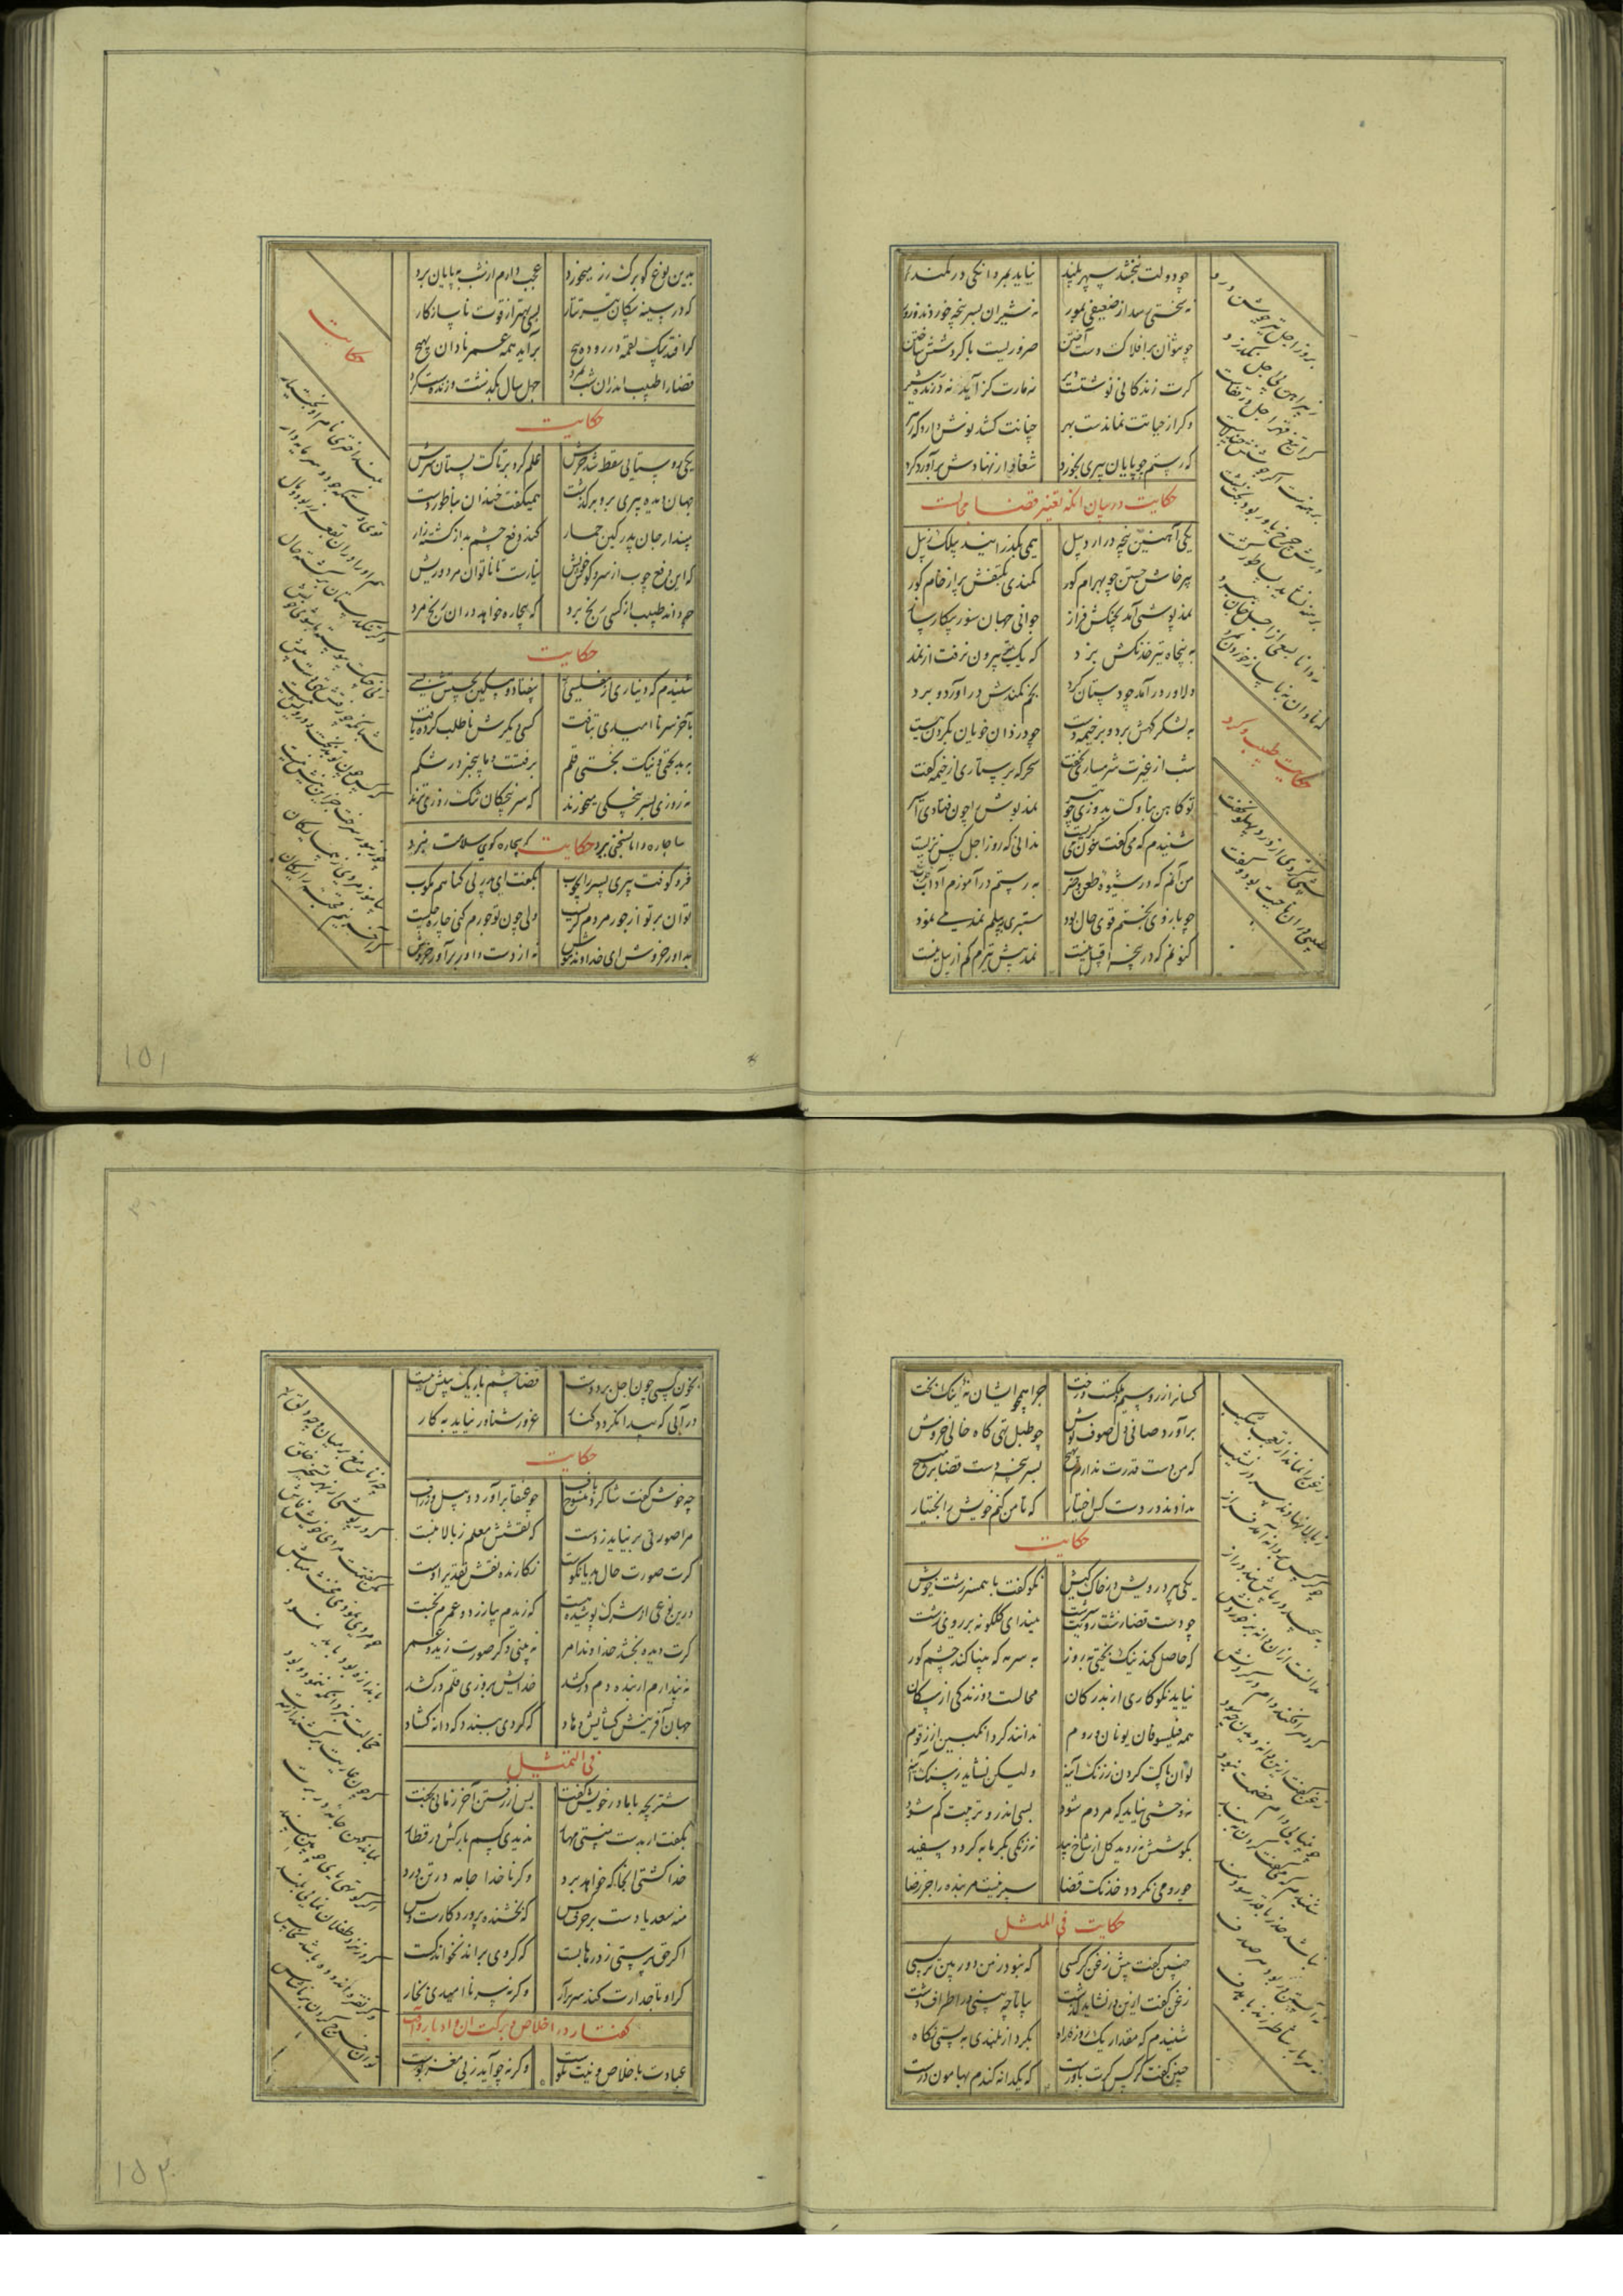 چو دولت نبخشد سپهر بلند نیاید بمردانگی در کمند
نه سختی رسد از ضعیفی بمور نه شیران بسر پنجه خوردند و زور
چو نتوان بر افلاک دست آختن ضروریست با گردشش ساختن
گرت زندگانی نوشتست دیر نه مارت گزاید نه درنده شیر
وگر از حیاتت نماندست بهر چنانت کشد نوش دارو که زهر
که رستم چو پایان پیری بخورد شغاد از نهادش برآورد گرد
حکایت در بیان آنکه تغییر قضا محالست
یکی آهنین پنجه در اردبیل همی بگذرانید بیلک ز بیل
بپرخاش جستن چو بهرام گور کمندی بکتفش بر از خام گور
نمد پوشی آمد بجنگش فراز جوانی جهان سوز پیکار ساز
به پنجاه تیر خدنگش بزد که یک تیر بیرون نرفت از نمد
دلاور در آمد چو دستان گرد بخم کمندش در آورد و برد
به لشکر گهش برد و بر خیمه دست چو دزدان خونی بگردن ببست
شب از غیرت شرمساری نخفت سحرگه پرستاری از خیمه گفت
تو کاهن بناوک بدوزی و تیر نمد پوش را چون فتادی اسیر
شنیدم که می گفت و خون می گریست ندانی که روز اجل کس نزیست
من آنم که در شیوه طعن و ضرب به رستم در آموزم آداب حرب
چو بازوی بختم قوی حال بود ستبری بیلم نمد می نمود
کنونم که در پنجه اقبیل نیست نمد پیش تیرم کم از بیل نیست
بروز اجل نیزه جوشن درد
ز پیراهن بی اجل نگذرد
کرا تیغ قهر اجل در قفاست
برهنست اگر جوشنش چند لاست
ورش بخت یاور بود دهر پشت
برهنه نشاید بساطور کشت
نه دانا بسعی از اجل جان ببرد
نه نادان به ناساز خوردن بمرد
حکایت طبیب و کرد
شبی کردی از درد پهلو نخفت
طبیبی در آن ناحیت بود و گفت
بدین نوع کو برگ رز میخورد عجب دارم ار شب به پایان برد
که در سینه پیکان تیر تتار بسی بهتر از قوت ناسازگار
گر افتد بیک لقمه در روده پیچ برآید همه عمر نادان بهیچ
قضا را طبیب اندران شب بمرد چهل سال بگذشت و زندست کرد
حکایت
یکی روستایی سقط شد خرش علم کرد بر تاک بستان سرش
جهان دیده پیری برو بر گذشت همیگفت خندان بناطور دشت
مپندار جان پدر کین حمار کند دفع چشم بد از کشت زار
که این دفع چوب از سر و گوش خویش نیارست تا ناتوان مرد و ریش
چه داند طبیب از کسی رنج برد که بیچاره خواهد در آن رنج مرد
حکایت
شنیدم که دیناری از مفلسی بیفتاد و مسکین بجستش بسی
بآخر سر ناامیدی بتافت کسی دیگرش ناطلب کرده یافت
به بدبختی و نیک بختی قلم برفتست و ما همچنان در شکم
نه روزی بسر پنجگی میخورند که سر پنجگان تنگ روزی ترند
بسا چاره دانا بسختی بمرد حکایت که بیچاره گوی سلامت ببرد
فرو کوفت پیری پسر را بچوب بگفت ای پدر بی گناهم مکوب
توان بر تو از جور مردم گریست ولی چون تو جورم کنی چاره چیست
بداور خروش ای خداوند هوش نه از دست داور برآور خروش
حکایت
بلند اختری نام او بختیار
قوی دستگه بود و سرمایه دار
دگر تنگدستان برگشته حال
گر آفرینم بچه رایگان
۱۵۱
کسان از زر و سیم و ملکست و رخت چرا همچو ایشان نه نیک بخت
برآورد صافی دل صوف پوش چو طبل تهی گاه خالی خروش
که من دست قدرت ندارم بهیچ بسر پنجه دست قضا بر مپیچ
ندادند در دست کس اختیار که تا من کنم خویش را بختیار
حکایت
یکی پیر درویش در خاک کیش نکو گفت با همسر زشت خویش
چو دست قضا زشت رویت سرشت میندای گلگونه بر روی زشت
که حاصل کند نیک بختی بزور به سرمه که بینا کند چشم کور
نیاید نکوکاری از بدرگان محالست دوزندگی از سگان
همه فیلسوفان یونان و روم ندانند کرد انگبین از زقوم
توان پاک کردن ز زنگ آینه ولیکن نشاید ز سنگ آینه
ز وحشی نیاید که مردم شود بسعی اندرو تربیت گم شود
بکوشش نروید گل از شاخ بید نه زنگی بگرما به گردد سفید
چو رد می نگردد خدنگ قضا سپر نیست مر بنده را جز رضا
حکایت فی المثل
چنین گفت پیش زغن کرکسی که نبود ز من دور بین تر کسی
زغن گفت ازین در نشاید گذشت بیا تا چه بینی در اطراف دشت
شنیدم که مقدار یک روزه راه بکرد از بلندی به پستی نگاه
چنین گفت کرکس گرت باورست که یکدانه گندم بهامون درست
زغن را نماند از تعجب شکیب
ز بالا نهادند سر در نشیب
چو کرکس بر دانه آمد فراز
ندانست از آن دانه بر خوردنش
که دهر افکند دام در گردنش
زغن گفت از آن دانه دیدن چه سود
چو بینایی دام خصمت نبود
نباشد حذر با قدر سودمند
نه آبستن در بود هر صدف
نه هر بار شاطر زند بر هدف
بخون کسی چون اجل برد دست قضا چشم باریک بینش ببست
در آبی که پیدا نگردد کنار غرور شناور نیاید به کار
حکایت
چه خوش گفت شاگرد منسوج باف چو عنقا برآورد و پیل و زراف
مرا صورتی بر نیاید ز دست که نقشش معلم ز بالا نبست
گرت صورت حال بد یا نکوست نگارنده نقش تقدیر اوست
درین نوعی از شرک پوشیده هست که زیدم بیازرد و عمرم بخست
گرت دیده بخشد خداوند امر نه بینی دگر صورت زید و عمر
نپندارم ار بنده دم در کشد خدایش بروزی قلم در کشد
جهان آفرینش گشایش دهاد که گر وی ببندد که داند گشاد
فی التمثیل
شتر بچه با مادر خویش گفت پس از رفتن آخر زمانی بخفت
بگفت ار بدست منستی مهار ندیدی کسم بارکش در قطار
خدا کشتی آنجا که خواهد برد وگر ناخدا جامه در تن درد
منه سعدیا دست بر حرف کس که بخشنده پروردگارست و بس
اگر حق پرستی ز درها بست که گر وی براند نخواند کست
گر او تاجدارت کند سر برآر وگر نه سر ناامیدی بخار
گفتار در اخلاص و برکت آن
عبادت باخلاص و نیت نکوست وگرنه چه آید ز بی مغز پوست
چه زنار مغ در میانت چه دلق
که در پوشی از بهر پندار خلق
مکن گفتمت مردی خویش فاش
چو مردی نمودی مخنث مباش
باندازه بود باید نمود
خجالت نبرد آنکه ننمود و بود
که چون عاریت برکشند از سرت
بماند کهن جامه در برت
اگر کوتهی پای چوبین مبند
که در چشم طفلان نمایی بلند
۱۵۲